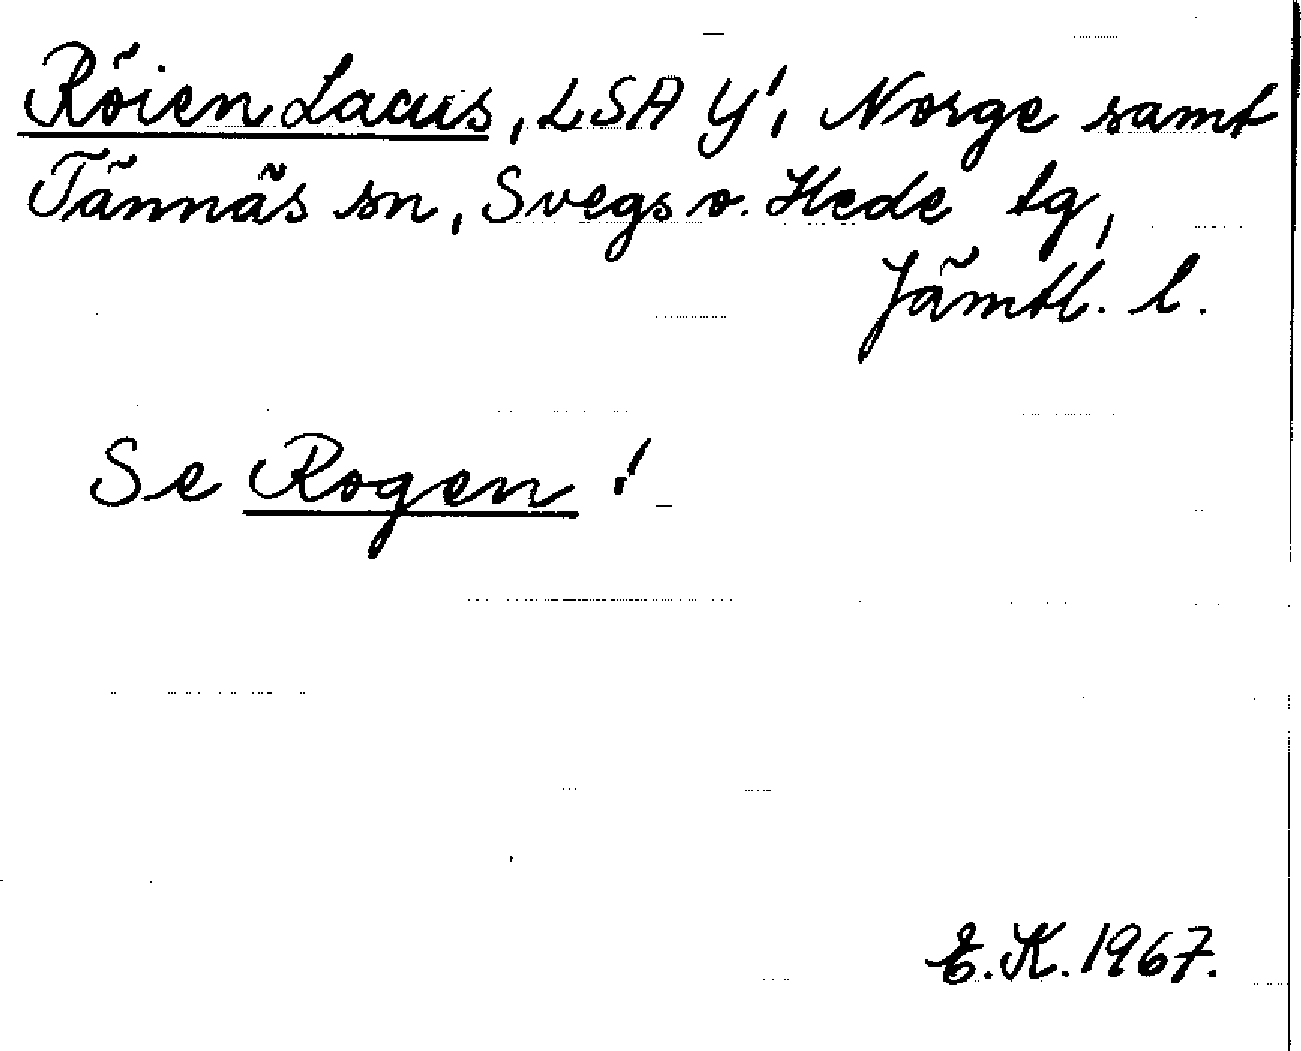 Röien Lacus, LSA Y1, Norge samt
Tännäs sn, Svegs o. Hede tg,
Jämtl. l.
Se Rogen!
E.K. 1967.